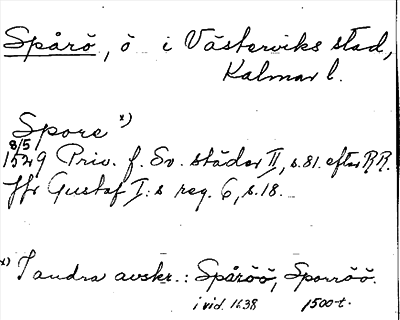 Spårö, ö i Västerviks stad,
Kalmar l.
Spore x)
8/5
1529 Priv. f. Sv. städer II, s. 81. efter RR.
Jfr Gustaf I:s reg. 6, s. 18.
x) I andra avskr.: Spåröö, Sporröö.
i vid. 1638 1500-t.